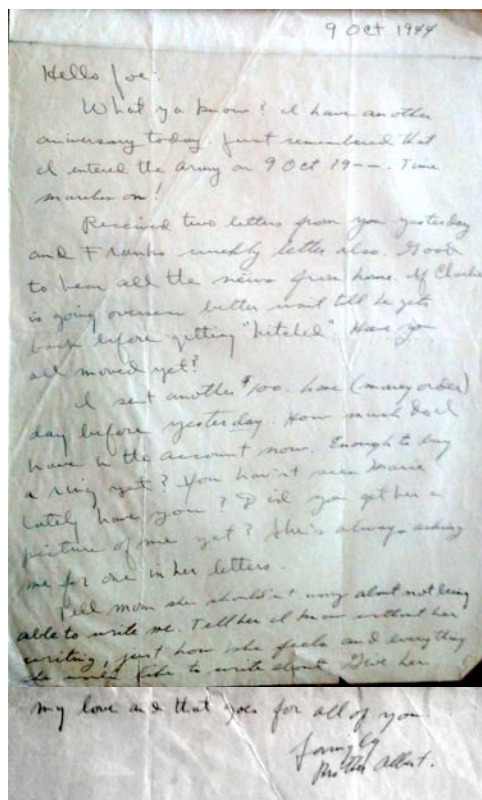 9 Oct 1944
Hello Joe:
What ya know? I have another
aniversary today. Just remembered that
I entered the Army on 9 Oct 19--. Time
marches on!
Received two letters from you yesterday
and Franks weekly letter also. Good
to hear all the news from home. If Charlie
is going overseas better wait till he gets
back before getting "hitched". Have you
all moved yet?
I sent another $100. home (money order)
day before yesterday. How much do I
have in the account now. Enough to buy
a ring yet? You hav'nt seen Marie
lately have you? Did you get her a
picture of me yet? She's always asking
me for one in her letters.
Tell Mom she shouldn't worry about not being
able to write me. Tell her I know without her
writing, just how she feels and everything
she would like to write about. Give her
my love and that goes for all of you
Lovingly
Brother Albert.